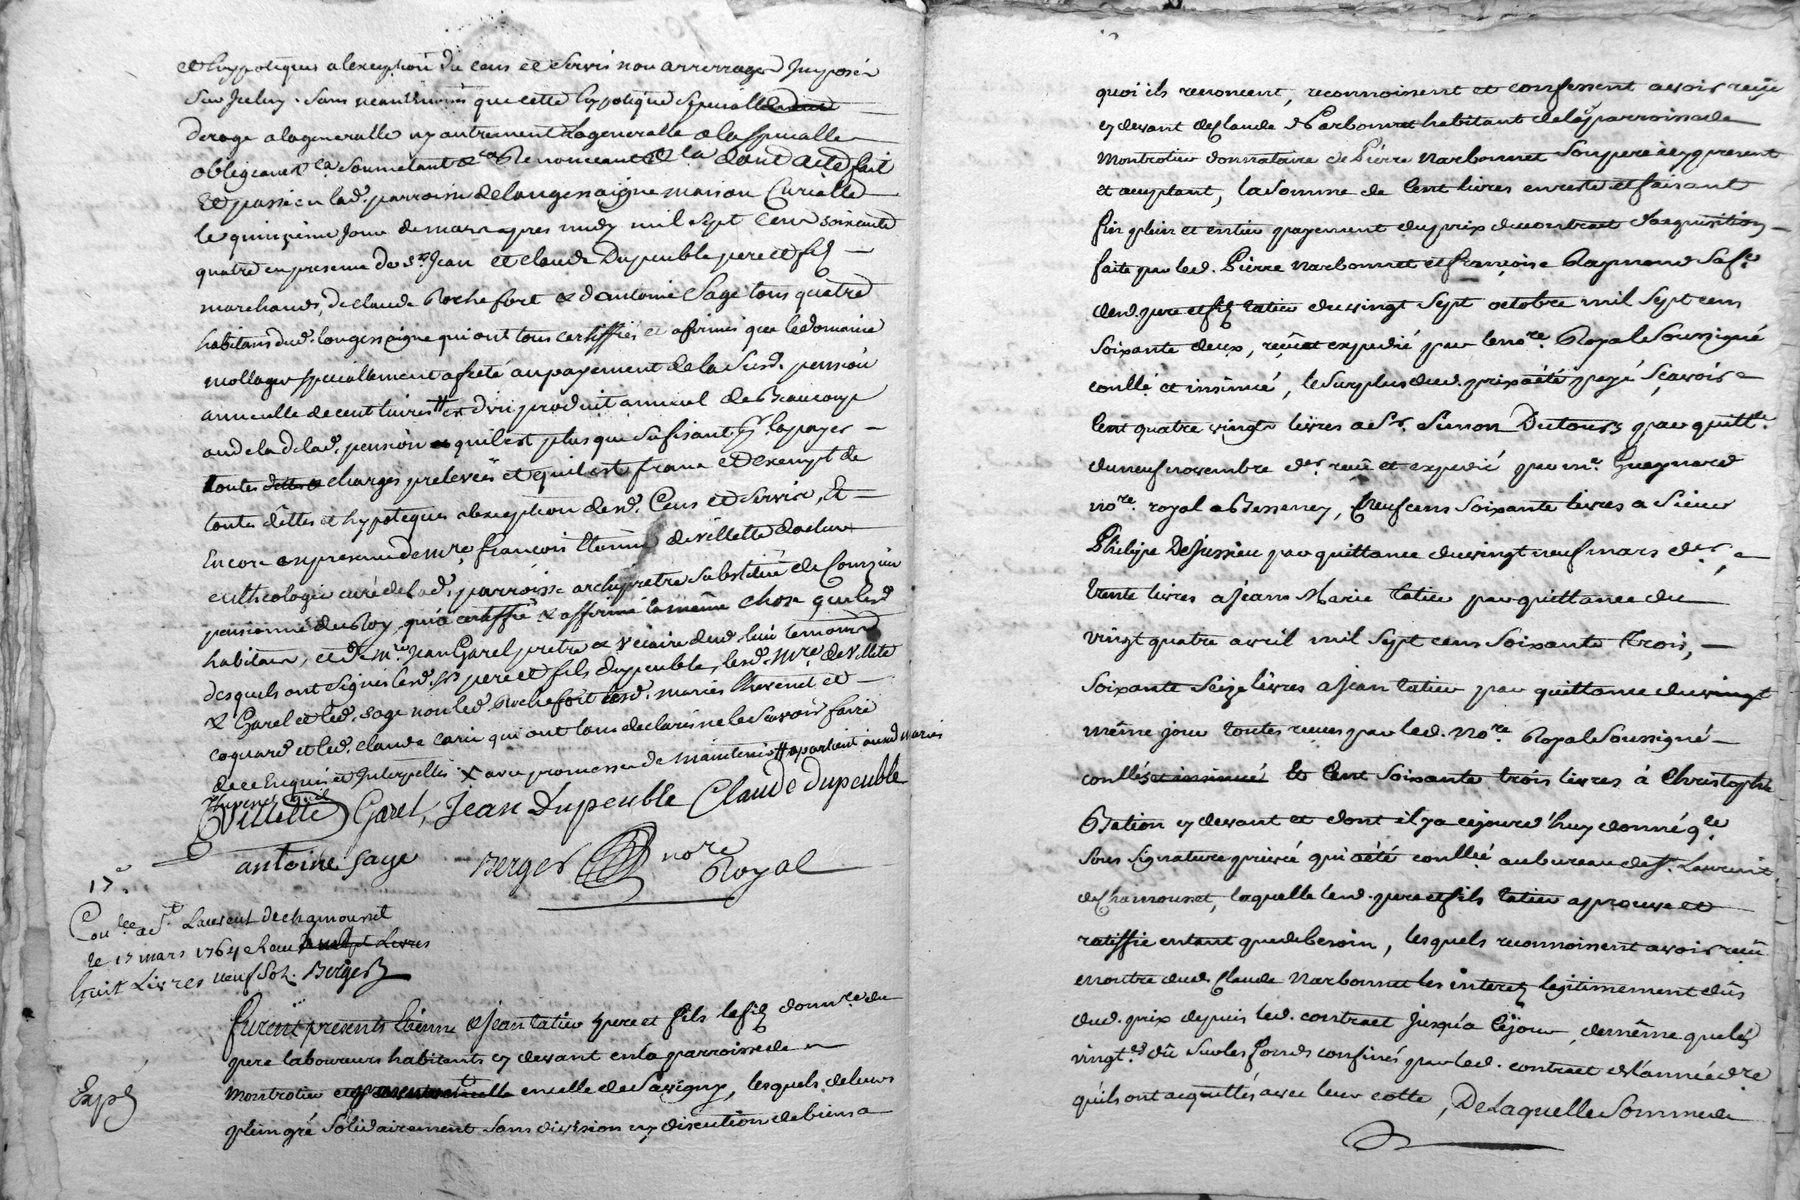 et hypoteques a lexeption du cens et servis non arrerragés Imposés
Sur Iceluy. Sans neantmoins que cette hypoteque specialle
deroge a la generalle ny autrement la generalle a la speciale
obligeant &a Soumetant &a Renonceant &a dont acte fait
et passé en lad. parroisse de longessaigne maison Curialle
le quinzieme Jour de mars apres midy mil sept cent soixante
quatre en presence de sr. Jean et claude Dupeuble pere et fils
marchands, de claude Rochefort & d'antoine Sage tous quatre
habitans dud. longessaigne qui ont tous certiffiés et affirmés que le domaine
mollager specialement afecté au payement de la susd. pension
annuelle de cent livres # est d'un produit annuel de Beaucoup
audela de lad. pension quil est plus que sufisant pr. la payer
toutes charges prelevées et quil est franc et exempt de
toutes dettes et hypoteques a lexeption desd. Cens et Servis, Et
Encore en presence de mre. françois Etienne de villette docteur
en theologie curé de lad. parroisse archipretre substitué de Courzieu
pensionné du Roy qui a certiffié & affirmé la même chose que lesd
habitans, et de mre. Jean Garel pretre & vicaire dud. lieu temoins
desquels ont signés lesd. srs pere et fils dupeuble, lesd. mre. de villette
& Garel et led. sage non led. Rochefort lesd. mariés thevenet et
coquard et led. claude carin qui ont tous declarés ne le scavoir faire
de ce Enquis et Interpellés X avec promesse de maintenir # apartient auxd mariés
thevenet
Villette Garel, Jean Dupeuble Claude dupeuble
antoine Sage Berger nore Royal
17e.
Conllé a St. Laurent de chamousset
le 17 mars 1764 Recu
huit Livres neuf sols. Berger
Expé
furent presents Etienne & Jean tatieu pere et fils le fils donnre du
pere laboureurs habitants cy devant en la parroisse de
Montrotier et en celle de Savigny, lesquels de leurs
plein gré solidairement sans division ny discution de biens a
quoi ils renoncent, reconnoissent et confessent avoir reçu
cy devant de Claude Narbonnet habitant de la parroisse de
Montrotier donnataire de Pierre Narbonnet Son pere icy present
et aceptant, la Somme de Cent livres en reste et faisant
fin plein et entier payement du prix du contract d'acquisition
faite par led. Pierre Narbonnet et françoise Raymond Safe.
desd. pere et fils tatieu du vingt Sept octobre mil Sept cens
Soixante deux, reçu et expedié par le nore. Royal Soussigné
conllé et insinué, le surplus dud. prix a été payé, Scavoir
Cent quatre vingts livres a Sr. Simon Dutours par quittce.
du neuf novembre dr. reçu et expedié par me. Guaynard
nore. royal a Bessenay, Neuf cens Soixante livres a Sieur
Philipe Dejussieu par quittance du vingt neuf mars dr.,
trente livres a Jeans Marie tatieu par quittance du
vingt quatre avril mil Sept cens Soixante trois,
Soixante Seize livres a Jean tatieu par quittance du vingt
même jour toutes reçues par led. Nore. Royal Soussigné
conllés et insinué Et Cent Soixante trois livres à Christophe
Bation cy devant et dont il y a cejourd'huy donné qce.
Sous Signature privée qui a été conllée au bureau de St. Laurent
de Chamousset, laquelle lesd. pere et fils tatieu aprouve et
ratiffie entant que de besoin, lesquels reconnoissent avoir reçu
en outre dud. Claude Narbonnet les interets legitimement dûs
dud. prix depuis led. contract Jusqu'a cejour, de même que les
vingt.es dû Sur les fonds confinés par led. contract de l'année dre
qu'ils ont acquittés avec leur cotte, De Laquelle Somme de